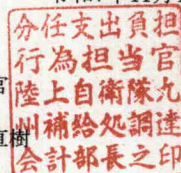 分任支出負担
行為担当官
陸上自衛隊九
州補給処調達
会計部長之印
直樹